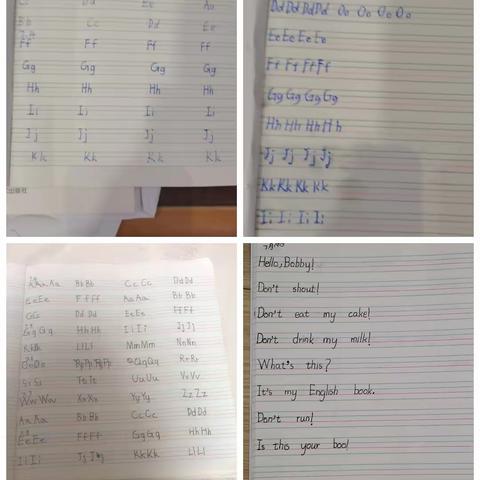 Cc Dd Ee Aa
Bb Cc Dd Ee
Ff Ff Ff Ff
Gg Gg Gg Gg
Hh Hh Hh Hh
Ii Ii Ii Ii
Jj Jj Jj Jj
Kk Kk Kk Kk
出版社
Dd Dd Dd Dd Oo Oo Oo Oo
Ee Ee Ee Ee
Ff Ff Ff Ff
Gg Gg Gg Gg
Hh Hh Hh Hh
Jj Jj Jj Jj
Kk Kk Kk Kk
Ii Ii Ii Ii
Aa Aa Bb Bb Cc Cc Dd Dd
Ee Ee Ff Ff Aa Aa Bb Bb
Cc Dd Dd Ee Ee Ff Ff
Gg Gg Hh Hh Ii Ii Jj Jj
Kk Kk Ll Ll Mm Mm Nn Nn
Oo Oo Pp Pp Qq Qq Rr Rr
Ss Ss Tt Tt Uu Uu Vv Vv
Ww Ww Xx Xx Yy Yy Zz Zz
Aa Aa Bb Bb Cc Cc Dd Dd
Ee Ee Ff Ff Gg Gg Hh Hh
Ii Ii Jj Jj Kk Kk Ll Ll
Hello, Bobby!
Don't shout!
Don't eat my cake!
Don't drink my milk!
What's this?
It's my English book.
Don't run!
Is this your boo